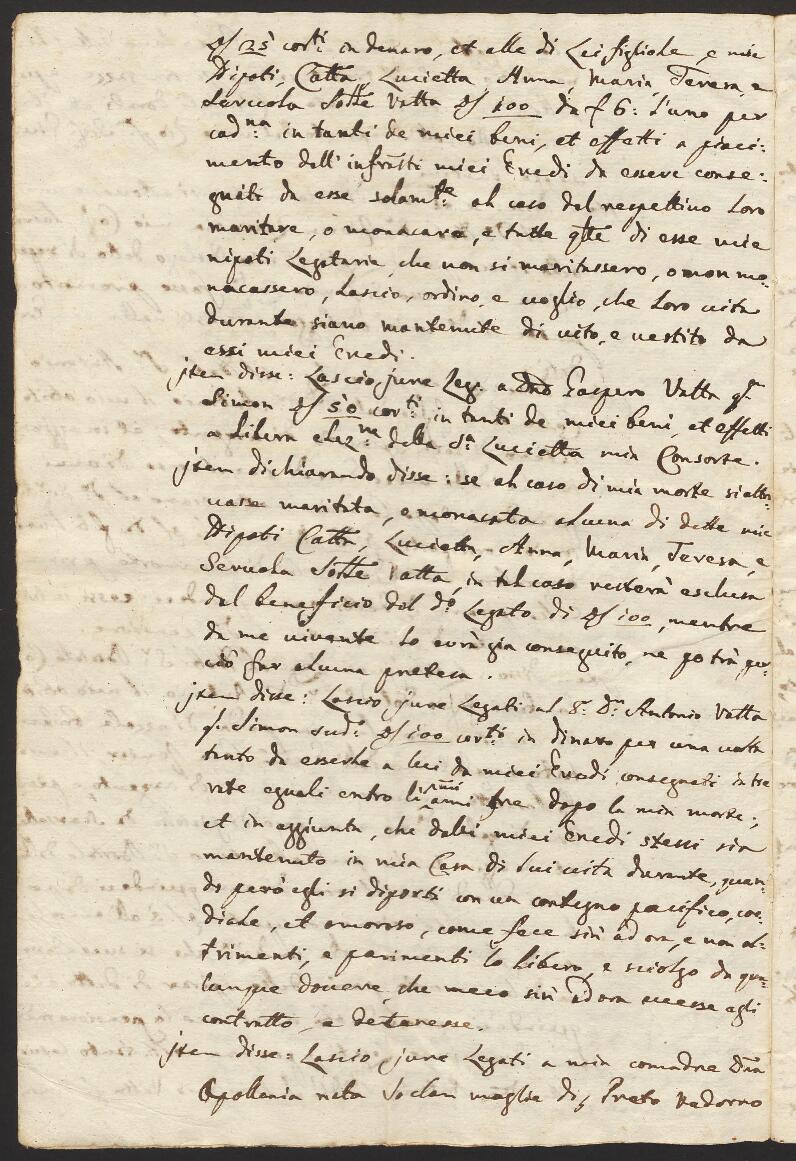 ƒ 25 corti in denaro, et alle di Lei figliole, e mie
Nipoti, Catta, Lucietta Anna, Maria, Teresa, e
Servola Sorelle Vatta ƒ 100 da £ 6: l'uno per
cadna in tanti de miei beni, et effetti a piaci:
mento dell' infratti miei Eredi da essere conse:
gnati da esse solamte al caso del respettivo Loro
maritare, o monacare, e tutte qlle di esse mie
nipoti Legatarie, che non si maritassero, o non mo:
nacassero, Lascio, ordino, e voglio, che Loro vita
durante siano mantenute di vito, e vestito da
essi miei Eredi.
jtem disse: Lascio jure Leg: a Gaspero Vatta qm
Simon ƒ 50 corti in tanti de miei beni, et effetti
a Libera elezne della Sa Lucietta mia Consorte.
jtem dichiarando disse: se al caso di mia morte si attro:
vasse maritata, o monacata alcuna di dette mie
Nipoti Catta, Lucietta, Anna, Maria, Teresa, e
Servola Sorelle Vatta, in tal caso resterà esclusa
dal beneficio del do Legato di ƒ 100, mentre
da me vivente lo avrà gia conseguito, ne potrà per
ciò far alcuna pretesa.
jtem disse: Lascio jure Legati al Sr Dn Antonio Vatta
q. Simon sudo ƒ 100 corti in dinaro per una volta
tanto da esserle a lui da miei Eredi consegnati in tre
rate eguali entro li anni tre dopo la mia morte;
et in aggiunta, che dalli miei Eredi stessi sia
mantenuto in mia Casa di lui vita durante, quan:
do però egli si diporti con un contegno pacifico, cor:
diale, et amoroso, come fece sin ad ora, e non al:
trimenti, e parimenti lo Libero, e sciolgo da qua:
lunque dovere, che meco sin ad ora avesse egli
contratto, e detenesse.
jtem disse: Lascio jure Legati a mia comadre Dna
Apollonia nata moglie di Preto